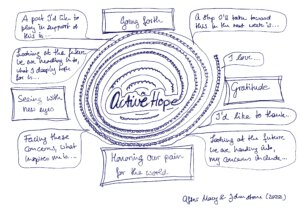 Going forth
A part I'd like to
play in support of
this is...
A step I'll take toward
this in the next week is...
Looking at the future
we are heading into,
what I deeply hope
for is...
I love...
Seeing with
new eyes
Active Hope
Gratitude
I'd like to thank...
Facing these
concerns, what
inspires me is...
Looking at the future
we are heading into,
my concerns include...
Honoring our pain
for the world.
After Macy & Johnstone (2022)